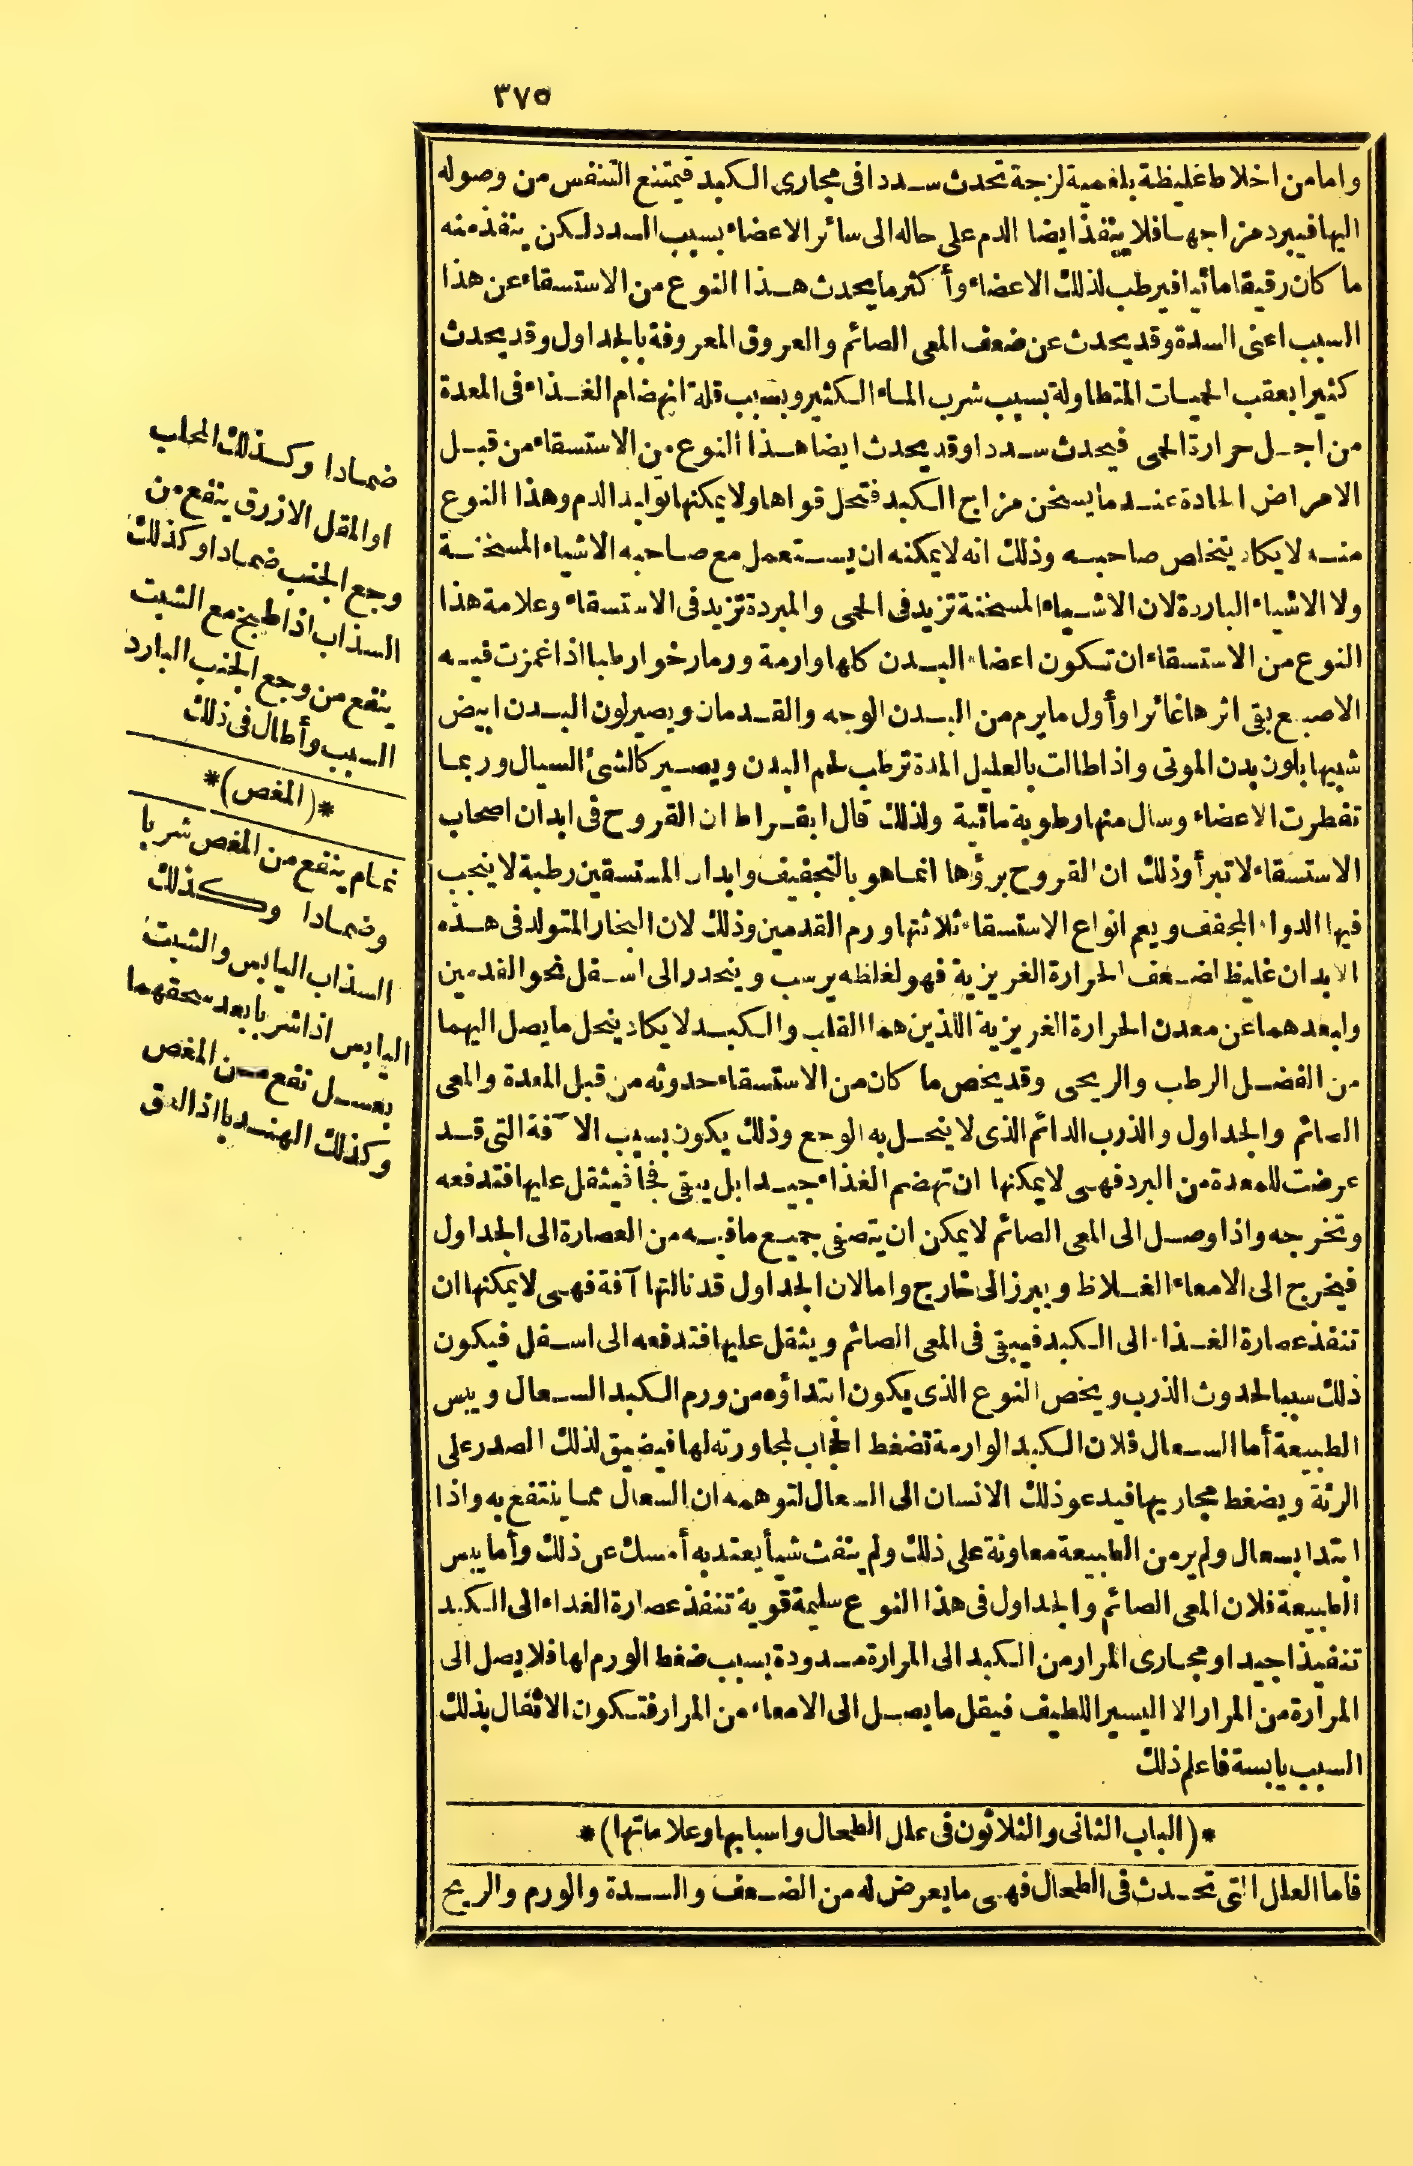 ٣٧٥
واما من اخلاط غليظة بلغمية لزجة تحدث سددا في مجارى الكبد فيمتنع التنفس من وصوله
اليها فيبرد مزاجها فلا ينفذ ايضا الدم على حاله الى سائر الاعضاء بسبب السدد لكن ينفذ منه
ما كان رقيقا مائيا فيرطب لذلك الاعضاء وأكثر ما يحدث هذا النوع من الاستسقاء عن هذا
السبب اعنى السدة وقد يحدث عن ضعف المعى الصائم والعروق المعروفة بالجداول وقد يحدث
كثيرا بعقب الحميات المتطاولة بسبب شرب الماء الكثير وبسبب قلة انهضام الغذاء فى المعدة
من اجل حرارة الحمى فيحدث سددا وقد يحدث ايضا هذا النوع من الاستسقاء من قبل
الامراض الحادة عند ما يسخن مزاج الكبد فتحل قواها ولا يمكنها توليد الدم وهذا النوع
منه لا يكاد يتخلص صاحبه وذلك انه لا يمكنه ان يستعمل مع صاحبه الاشياء المسخنة
ولا الاشياء الباردة لان الاشياء المسخنة تزيد فى الحمى والمبردة تزيد فى الاستسقاء وعلامة هذا
النوع من الاستسقاء ان تكون اعضاء البدن كلها وارمة ورما رخوا رطبا اذا غمزت فيه
الاصبع بقى اثرها غائرا وأول ما يرم من البدن الوجه والقدمان ويصير لون البدن ابيض
شبيها بلون بدن الموتى واذا طالت بالعليل المدة ترطب لحم البدن ويصير كالشئ السيال وربما
تفطرت الاعضاء وسال منها رطوبة مائية ولذلك قال ابقراط ان القروح فى ابدان اصحاب
الاستسقاء لا تبرأ وذلك ان القروح برؤها انما هو بالتجفيف وابدان المستسقين رطبة لا ينجب
فيها الدواء المجفف ويعم انواع الاستسقاء ثلاثتها ورم القدمين وذلك لان البخار المتولد فى هذه
الابدان غليظ لضعف الحرارة الغريزية فهو لغلظه يرسب وينحدر الى اسفل نحو القدمين
وابعدهما عن معدن الحرارة الغريزية اللذين هما القلب والكبد لا يكاد ينحل ما يصل اليهما
من الفضل الرطب والريحى وقد يخص ما كان من الاستسقاء حدوثه من قبل المعدة والمعى
الصائم والجداول والذرب الدائم الذى لا ينحل به الوجع وذلك يكون بسبب الآفة التى قد
عرضت للمعدة من البرد فهى لا يمكنها ان تهضم الغذاء جيدا بل يبقى فجا فيثقل عليها فتدفعه
وتخرجه واذا وصل الى المعى الصائم لا يمكن ان يتصفى جميع ما فيه من العصارة الى الجداول
فيخرج الى الامعاء الغلاظ ويبرز الى خارج واما لان الجداول قد نالتها آفة فهى لا يمكنها ان
تنفذ عصارة الغذاء الى الكبد فيبقى فى المعى الصائم ويثقل عليها فتدفعه الى اسفل فيكون
ذلك سببا لحدوث الذرب ويخص النوع الذى يكون ابتداؤه من ورم الكبد السعال ويبس
الطبيعة أما السعال فلان الكبد الوارمة تضغط الحجاب لمجاورته لها فيضيق لذلك الصدر على
الرئة ويضغط مجاريها فيدعو ذلك الانسان الى السعال لتوهمه ان السعال مما ينتفع به واذا
ابتدا بسعال ولم ير من الطبيعة معاونة على ذلك ولم ينفث شيأ يعتد به أمسك عن ذلك وأما يبس
الطبيعة فلان المعى الصائم والجداول فى هذا النوع سليمة قوية تنفذ عصارة الغذاء الى الكبد
تنفيذا جيدا ومجارى المرار من الكبد الى المرارة مسدودة بسبب ضغط الورم لها فلا يصل الى
المرارة من المرار الا اليسير اللطيف فيقل ما يصل الى الامعاء من المرار فتكون الاثفال بذلك
السبب يابسة فاعلم ذلك
*(الباب الثانى والثلاثون فى علل الطحال واسبابها وعلاماتها)*
فاما العلل التى تحدث فى الطحال فهى ما يعرض له من الضعف والسدة والورم والريح
ضمادا وكذلك المحلب
او المقل الازرق ينفع من
وجع الجنب ضمادا وكذلك
السذاب اذا طبخ مع الشبت
ينفع من وجع الجنب البارد
السبب وأطال فى ذلك
*(المغص)*
نمام ينفع من المغص شربا
وضمادا وكذلك
السذاب اليابس والشبت
اليابس اذا شربا بعد سحقهما
بعسل نفع من المغص
وكذلك الهندبا اذا الدق